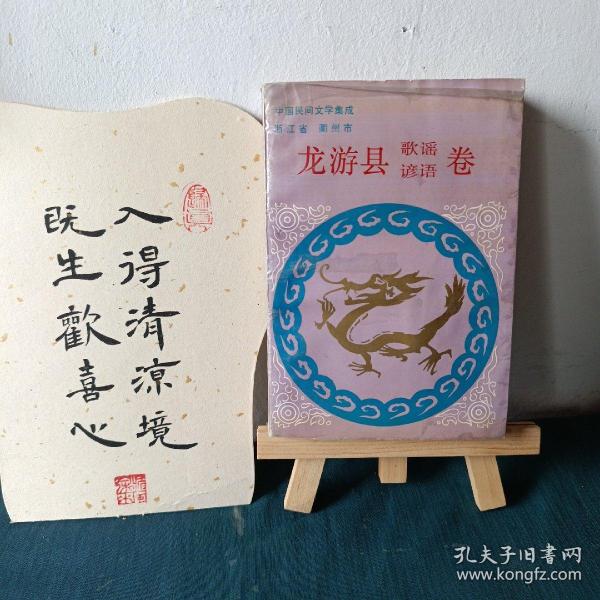 入得清凉境
既生歡喜心
中国民间文学集成
浙江省 衢州市
龙游县 歌谣 谚语 卷
孔夫子旧書网
www.kongfz.com